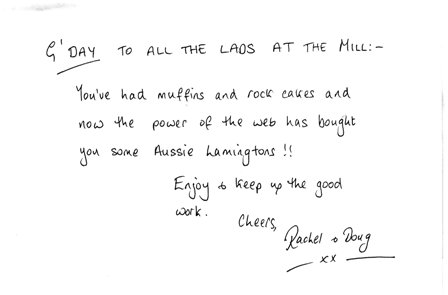 G'DAY TO ALL THE LADS AT THE MILL:-
You've had muffins and rock cakes and
now the power of the web has bought
you some Aussie Lamingtons!!
Enjoy & keep up the good
work.
Cheers,
Rachel & Doug
xx